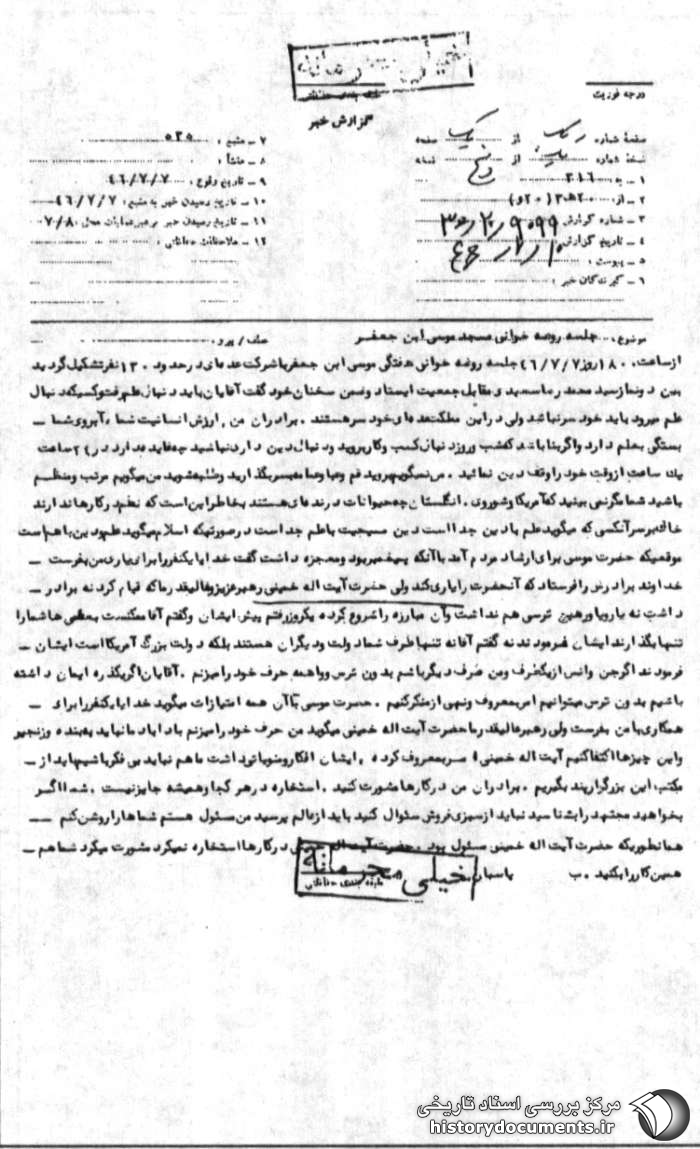 خیلی محرمانه
طبقه بندی حفاظتی
درجه فوریت
گزارش خبر
صفحهٔ شماره یک از یک صفحه
نسخهٔ شماره از نسخه
۱ - به : ۳۱۶
۲ - از : ۲۰ ه ۳
۳ - شماره گزارش
۴ - تاریخ گزارش
۵ - پیوست :
۶ - گیرندگان خبر :
۷ - منبع : ۵۳۵
۸ - منشأ :
۹ - تاریخ وقوع : ۴۶/۷/۷
۱۰ - تاریخ رسیدن خبر به منبع : ۴۶/۷/۷
۱۱ - تاریخ رسیدن خبر به رهبر عملیات محل ۷/۸
۱۲ - ملاحظات حفاظتی :
موضوع : جلسه روضه خوانی مسجد موسی ابن جعفر عطف / پیرو
از ساعت ۱۸۰۰ روز ۴۶/۷/۷ جلسه روضه خوانی هفتگی موسی ابن جعفر با شرکت عده‌ای در حدود ۱۳۰ نفر تشکیل گردید
بین دو نماز سید محمدرضا سعیدی مقابل جمعیت ایستاد و ضمن سخنان خود گفت آقایان باید دنبال علم رفت و کسیکه دنبال
علم میرود باید خود سر نباشد ولی در این مملکت عده‌ای خود سر هستند . برادران من ، ارزش انسانیت شما ، آبروی شما –
بستگی بعلم دارد و اگر بنا باشد که شب و روز دنبال کسب و کار بروید و دنبال دین داری نباشید چه فایده دارد در ۲۴ ساعت
یک ساعت از وقت خود را وقف دین نمائید . من نمیگویم بروید قم و عبا و عمامه بسر بگذارید و طلبه شوید من میگویم مرتب و منظم
باشید شما گر نمی بینید که آمریکا و شوروی ، انگلستان چه حیوانات درنده‌ای هستند بخاطر این است که نظم در کارها ندارند
خاک بر سر آنکسی که میگوید علم با دین جدا است دین مسیحیت با علم جداست در صورتیکه اسلام میگوید علم و دین با هم است
موقعیکه حضرت موسی برای ارشاد مردم آمد با آنکه پیغمبر بود و معجزه داشت گفت خدایا یکنفر را برای یاری من بفرست –
خداوند برادرش را فرستاد که آنحضرت را یاری کند ولی حضرت آیت اله خمینی رهبر عزیز و عالیقدر ما که قیام کرد نه برادر –
داشت نه یار و یاور هیچ ترسی هم نداشت و آن مبارزه را شروع کرده یکروز رفتم پیش ایشان و گفتم آقا ممکنست بعضی ها شما را
تنها بگذارند ایشان فرمودند نه گفتم آقا نه تنها طرف شما دولت و دیگران هستند بلکه دولت بزرگ آمریکا است ایشان –
فرمودند اگر جن و انس از یکطرف و من طرف دیگر باشم بدون ترس و واهمه حرف خود را میزنم . آقایان اگر یکذره ایمان داشته
باشیم بدون ترس میتوانیم امر بمعروف و نهی از منکر کنیم . حضرت موسی با آن همه امتیازات میگوید خدایا یکنفر را برای –
همکاری با من بفرست ولی رهبر عالیقدر ما حضرت آیت اله خمینی میگوید من حرف خود را میزنم باد اباد ما نباید به بند و زنجیر
و این چیزها اکتفا کنیم آیت اله خمینی امر بمعروف کرده ، ایشان افکار و منویاتی داشت ما هم نباید بی فکر باشیم باید از –
مکتب این بزرگوار پند بگیریم . برادران من در کارها مشورت کنید . استخاره در هر کجا و همیشه جایز نیست . شما اگر
بخواهید مجتهد را بشناسید نباید از سبزی فروش سئوال کنید باید از عالم پرسید من مسئول هستم شماها را روشن کنم –
همانطوریکه حضرت آیت اله خمینی مسئول بود . حضرت آیت اله خمینی در کارها استخاره نمیکرد مشورت میکرد شما هم –
همین کار را بکنید . ب پاسبان
خیلی محرمانه
طبقه بندی حفاظتی
مرکز بررسی اسناد تاریخی
historydocuments.ir